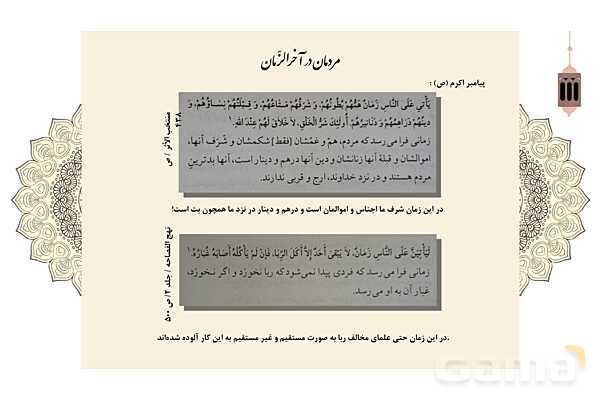 مردمان در آخرالزّمان
پیامبر اکرم (ص) :
یَأْتِي عَلَی النَّاسِ زَمَانٌ هَمُّهُمْ بُطُونُهُمْ، وَ شَرَفُهُمْ مَتَاعُهُمْ، وَ قِبْلَتُهُمْ نِسَاؤُهُمْ، وَ
دِینُهُمْ دَرَاهِمُهُمْ وَ دَنَانِیرُهُمْ أُولٰئِكَ شَرُّ الْخَلْقِ، لَا خَلَاقَ لَهُمْ عِنْدَ اللهِ.¹
زمانی فرا می رسد که مردم، همّ و غمّشان [فقط] شکمشان و شَرَف آنها،
اموالشان و قبلۀ آنها زنانشان و دین آنها درهم و دینار است، آنها بدترین
مردم هستند و در نزد خداوند، ارج و قربی ندارند.
منتخب الأثر / ص
۴۳۸
در این زمان شرف ما اجناس و اموالمان است و درهم و دینار در نزد ما همچون بت است!
لَیَأْتِیَنَّ عَلَی النَّاسِ زَمَانٌ، لَا یَبْقَی أَحَدٌ إِلَّا أَکَلَ الرِّبَا، فَإِنْ لَمْ یَأْکُلْهُ أَصَابَهُ غُبَارُهُ.¹
زمانی فرا می رسد که فردی پیدا نمی‌شود که ربا نخورد و اگر نخورد،
غبار آن به او می رسد.
نهج الفصاحه / جلد ۲/ ص ۵۰۰
.در این زمان حتی علمای مخالف ربا به صورت مستقیم و غیر مستقیم به این کار آلوده شده‌اند
Gama